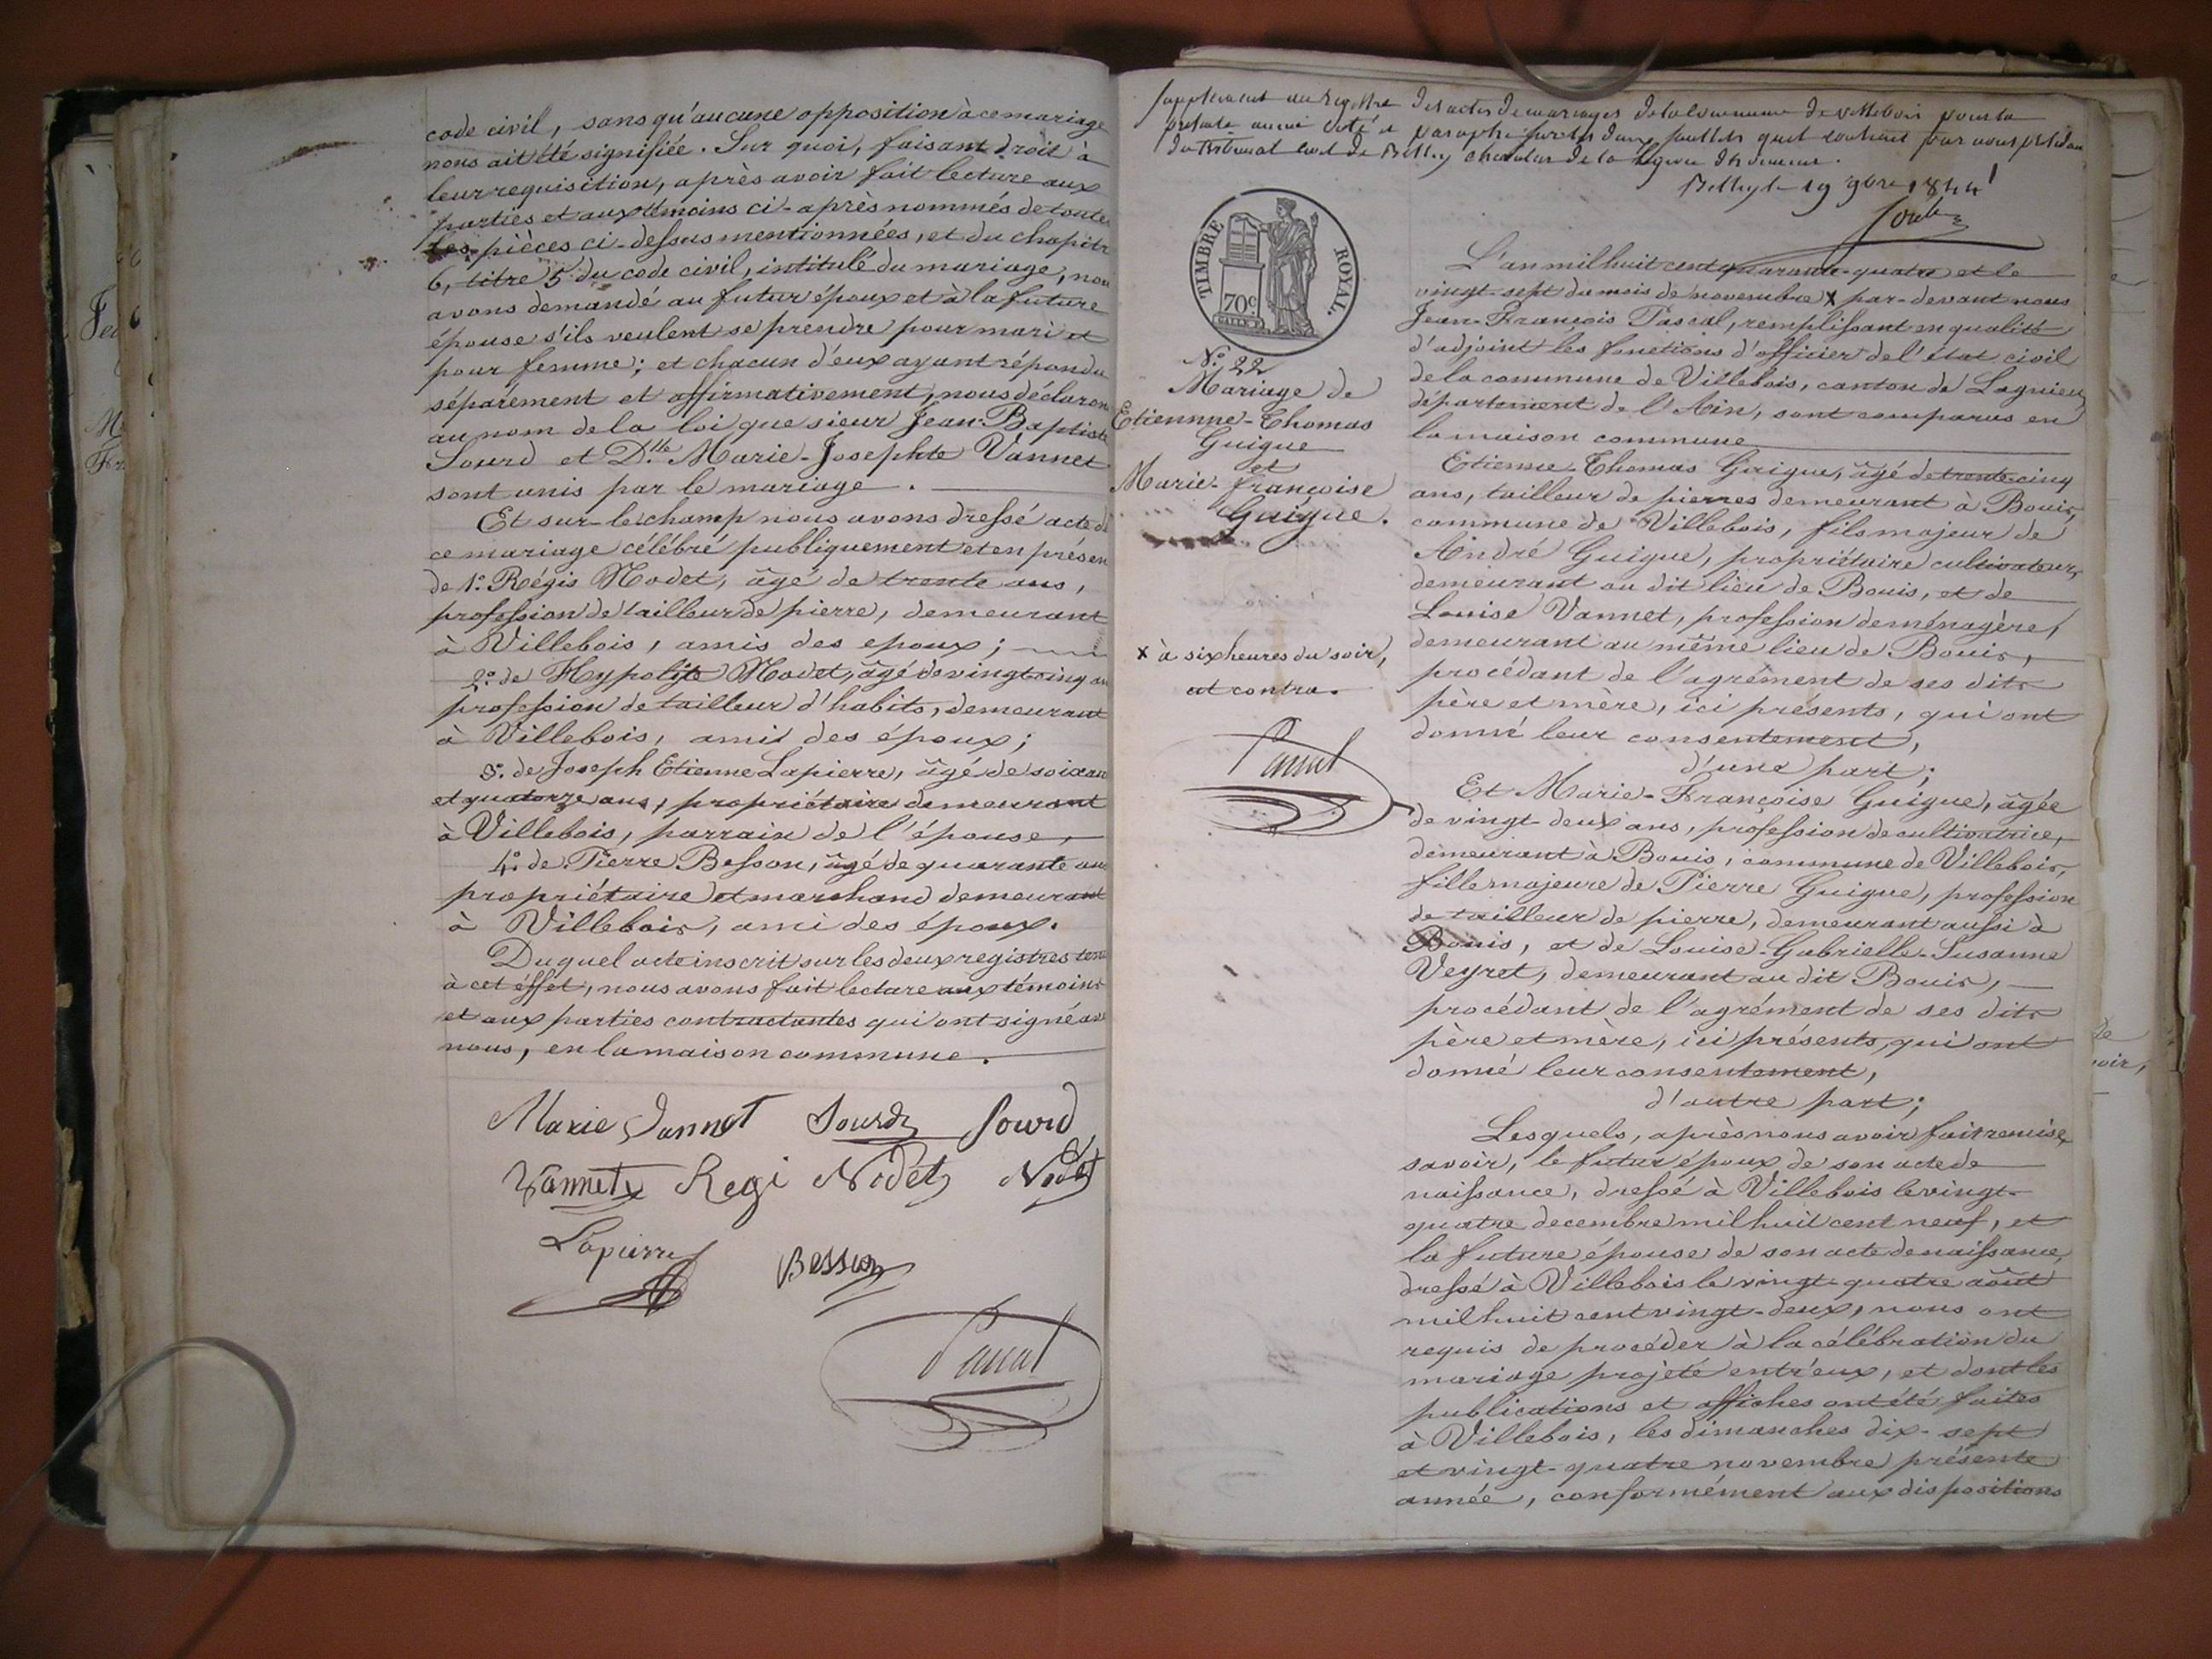 code civil, sans qu'aucune opposition à ce mariage
nous ait été signifiée. Sur quoi, faisant droit à
leur requisition, après avoir fait lecture aux
parties et aux témoins ci-après nommés de toutes
les pièces ci-dessus mentionnées, et du chapitre
6, titre 5 du code civil, intitulé du mariage, nou
avons demandé au futur époux et à la future
épouse s'ils veulent se prendre pour mari et
pour femme; et chacun d'eux ayant répondu
séparément et affirmativement, nous déclarons
au nom de la loi que sieur Jean-Baptiste
Sourd et D.lle Marie-Josephte Vannet
sont unis par le mariage.
Et sur-le-champ nous avons dressé acte de
ce mariage célébré publiquement et en présen
de 1.° Régis Nodet, âgé de trente ans,
profession de tailleur de pierre, demeurant
à Villebois, amis des epoux;
2.° de Hypolite Nodet, âgé de vingt-cinq an
profession de tailleur d'habits, demeurant
à Villebois, ami des époux;
3.° de Joseph Etienne Lapierre, âgé de soixan
et quatorze ans, propriétaire demeurant
à Villebois, parrain de l'épouse,
4.° de Pierre Besson, âgé de quarante ans
propriétaire et marchand demeurant
à Villebois, ami des époux.
Duquel acte inscrit sur les deux registres tenu
à cet éffet, nous avons fait lecture aux témoins
et aux parties contractantes qui ont signé avec
nous, en la maison commune.
Marie Vannet Sourd Sourd
Vannet Regi Nodet Nodet
Lapierre Besson
Pascal
Supplement au registre des actes de mariages de la commune de Villebois pour la
présente année coté et paraphé sur les deux feuillets qu'il contient par nous président
du tribunal civil de Belley chevalier de la légion d'honneur.
Belley le 19 9bre 1844
TIMBRE ROYAL.
70c
N.° 22
Mariage de
Etiennne-Thomas
Guigue
et
Marie-françoise
Guigue.
x à six heures du soir,
at contra.
Pascal
L'an mil huit cent quarante-quatre et le
vingt-sept du mois de novembre x par-devant nous
Jean-François Pascal, remplissant en qualité
d'adjoint les fonctions d'officier de l'état civil
de la commune de Villebois, canton de Lagnieu
département de l'Ain, sont comparus en
la maison commune
Etienne-Thomas Guigue, âgé de trente-cinq
ans, tailleur de pierres demeurant à Bouis,
commune de Villebois, fils majeur de
André Guigue, propriétaire cultivateur,
demeurant au dit lieu de Bouis, et de
Louise Vannet, profession de ménagère,
demeurant au même lieu de Bouis,
procédant de l'agrément de ses dits
père et mère, ici présents, qui ont
donné leur consentement,
d'une part;
Et Marie-Françoise Guigue, âgée
de vingt-deux ans, profession de cultivatrice,
demeurant à Bouis, commune de Villebois,
fille majeure de Pierre Guigue, profession
de tailleur de pierre, demeurant aussi à
Bouis, et de Louise-Gabrielle-Susanne
Veyret, demeurant au dit Bouis,
procédant de l'agrément de ses dits
père et mère, ici présents, qui ont
donné leur consentement,
d'autre part;
Lesquels, après nous avoir fait remise,
savoir, le futur époux de son acte de
naissance, dressé à Villebois le vingt-
quatre decembre mil huit cent neuf, et
la future épouse de son acte de naissance,
dressé à Villebois le vingt-quatre août
mil huit cent vingt-deux, nous ont
requis de procéder à la célébration du
mariage projeté entr'eux, et dont les
publications et affiches ont été faites
à Villebois, les dimanches dix-sept
et vingt-quatre novembre présente
année, conformément aux dispositions